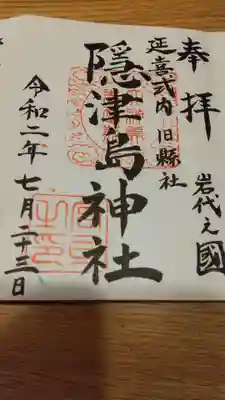 奉拝
岩代之國
延喜式内旧縣社
隠津島神社
令和二年七月二十三日